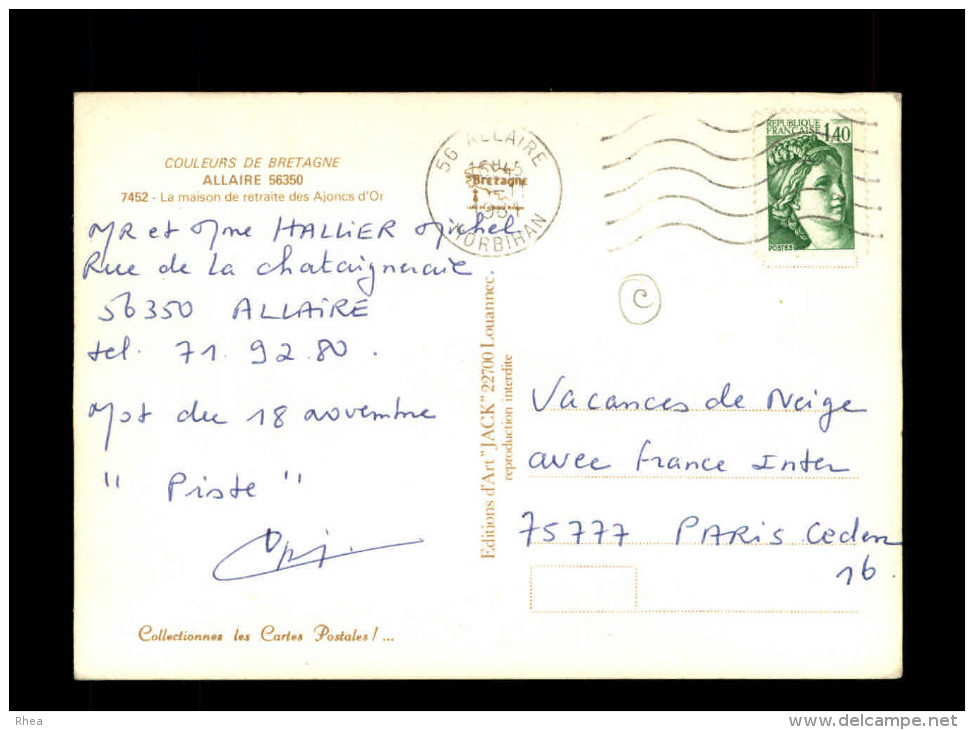 COULEURS DE BRETAGNE
ALLAIRE 56350
7452 - La maison de retraite des Ajoncs d'Or
MR et Mme HALLIER Michel
Rue de la chataigneraie.
56350 ALLAIRE
tel. 71. 92. 80.
Mot du 18 novembre
" Piste "
Collectionnez les Cartes Postales ! ...
Editions d'Art "JACK" 22700 Louannec.
reproduction interdite
56 ALLAIRE
16H45
Bretagne
MORBIHAN
REPUBLIQUE
FRANCAISE 1,40
POSTES
C
Vacances de Neige
avec France Inter
75777 PARIS Cedex
16.
Rhea
delcampe.net